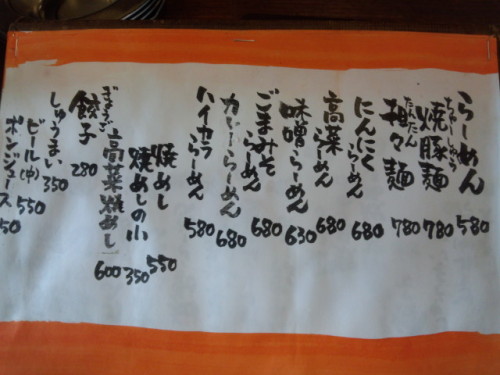 らーめん 580
ちゃーしゅう
焼豚麺 780
たんたん
担々麺 780
にんにくらーめん 680
高菜らーめん 680
味噌らーめん 630
ごまみそらーめん 680
カレーらーめん 680
ハイカラらーめん 580
焼めし 550
焼めしの小 350
高菜焼めし 600
ぎょうざ
餃子 280
しゅうまい 350
ビール(中) 550
ポンジュース 50